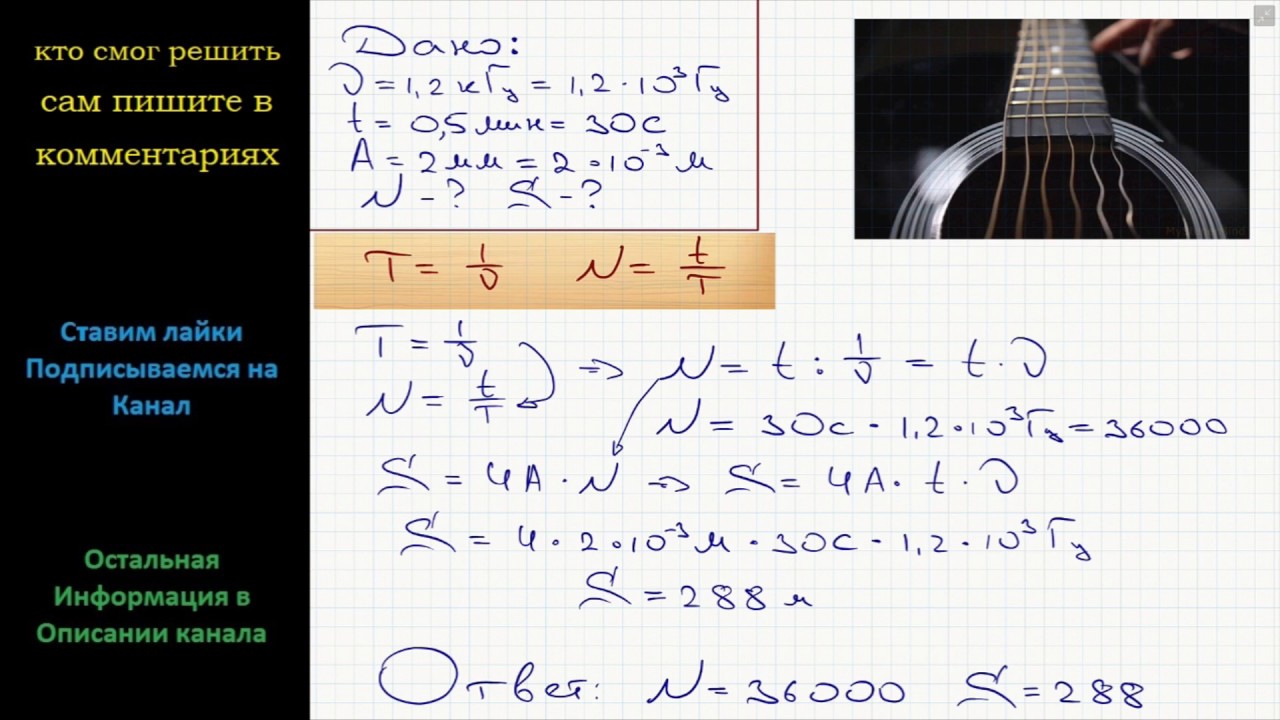 кто смог решить
сам пишите в
комментариях
Ставим лайки
Подписываемся на
Канал
Остальная
Информация в
Описании канала
Дано:
ν = 1,2 кГц = 1,2 · 10³ Гц
t = 0,5 мин = 30с
A = 2 мм = 2 · 10⁻³ м
N - ? S - ?
T = 1/ν N = t/T
T = 1/ν
N = t/T
⇒ N = t : 1/ν = t · ν
N = 30с · 1,2 · 10³ Гц = 36000
S = 4A · N ⇒ S = 4A · t · ν
S = 4 · 2 · 10⁻³ м · 30с · 1,2 · 10³ Гц
S = 288 м
Ответ: N = 36000 S = 288